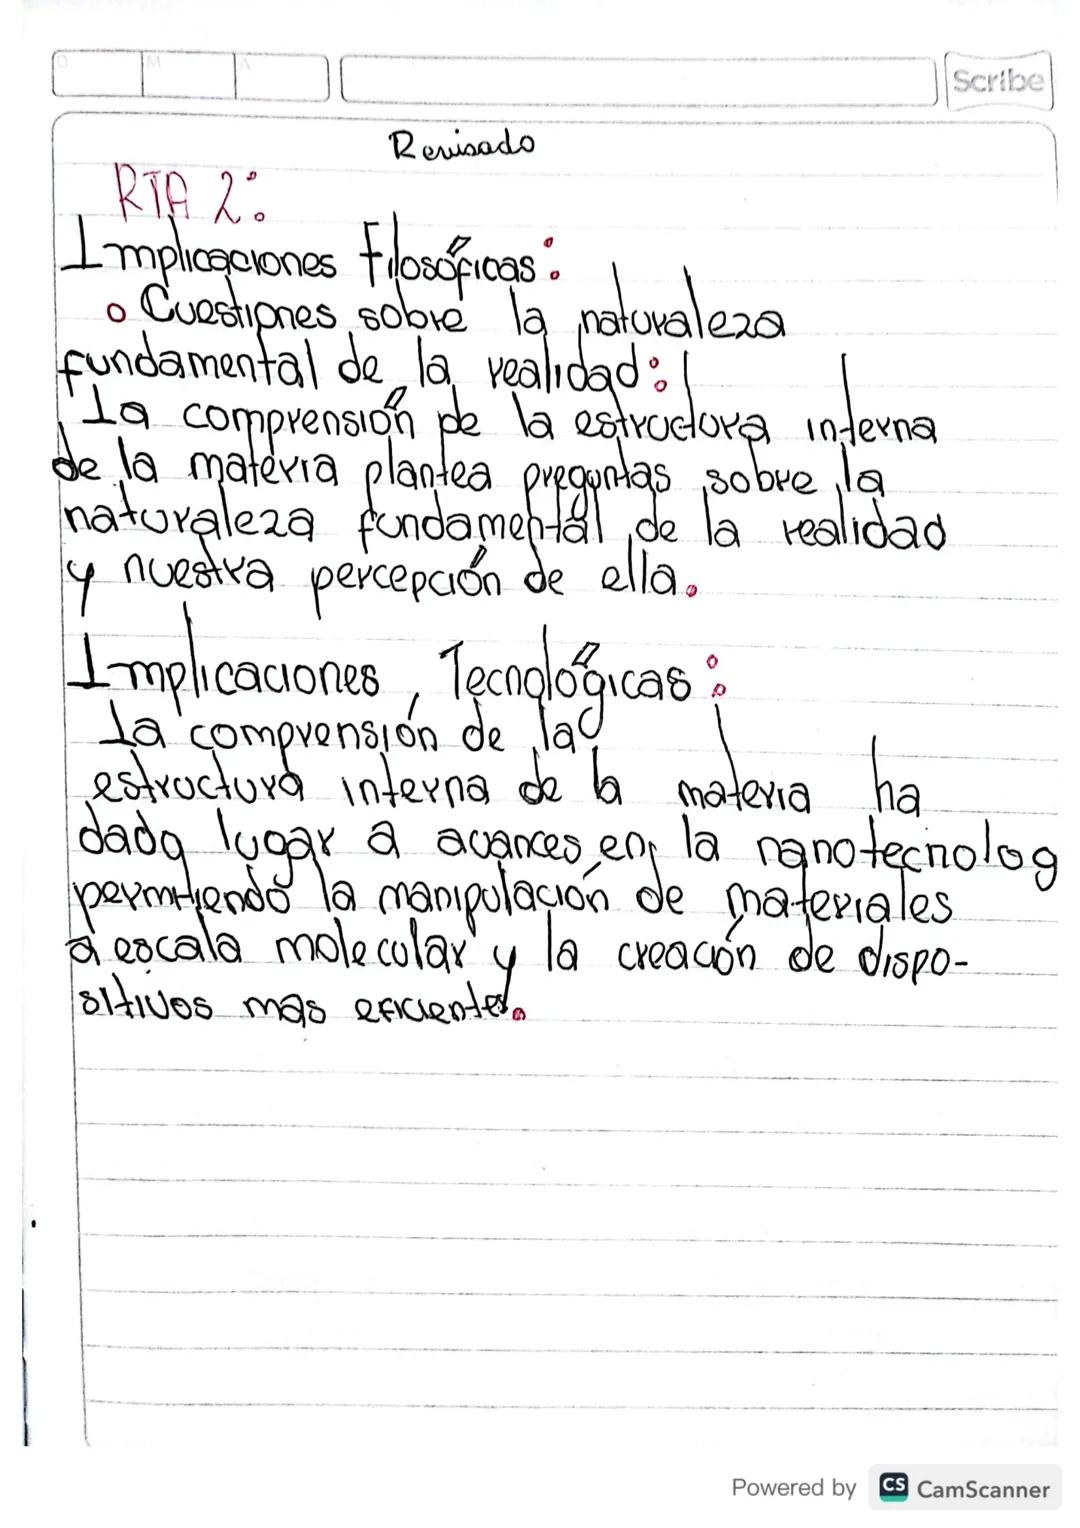 D M A
Scribe
Revisado
RTA 2:
Implicaciones Filosóficas:
o Cuestiones sobre la naturaleza
fundamental de la realidad:
La comprensión de la estructura interna
de la materia plantea preguntas sobre la
naturaleza fundamental de la realidad
y nuestra percepción de ella.
Implicaciones Tecnológicas:
La comprensión de la
estructura interna de la materia ha
dado lugar a avances en la nanotecnolog
permitiendo la manipulación de materiales
a escala molecular y la creación de dispo-
sitivos mas eficientes.
Powered by CS CamScanner